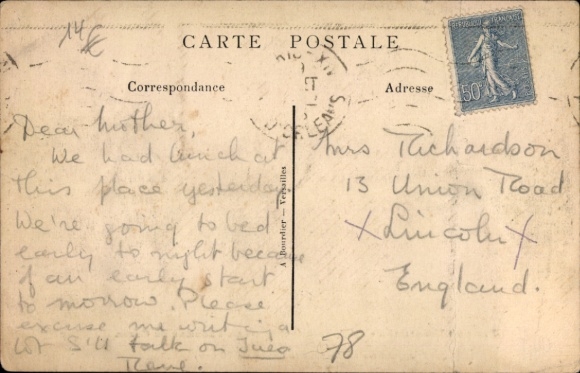 14
CARTE POSTALE
REPUBLIQUE FRANÇAISE
50c
Correspondance
Adresse
ORLEANS
Dear Mother,
We had lunch at
this place yesterday.
We're going to bed
early to night because
of an early start
to morrow. Please
excuse me writing a
lot I'll talk on Tues
Rene.
A Bourdier — Versailles
Mrs Richardson
13 Union Road
X Lincoln X
England.
78